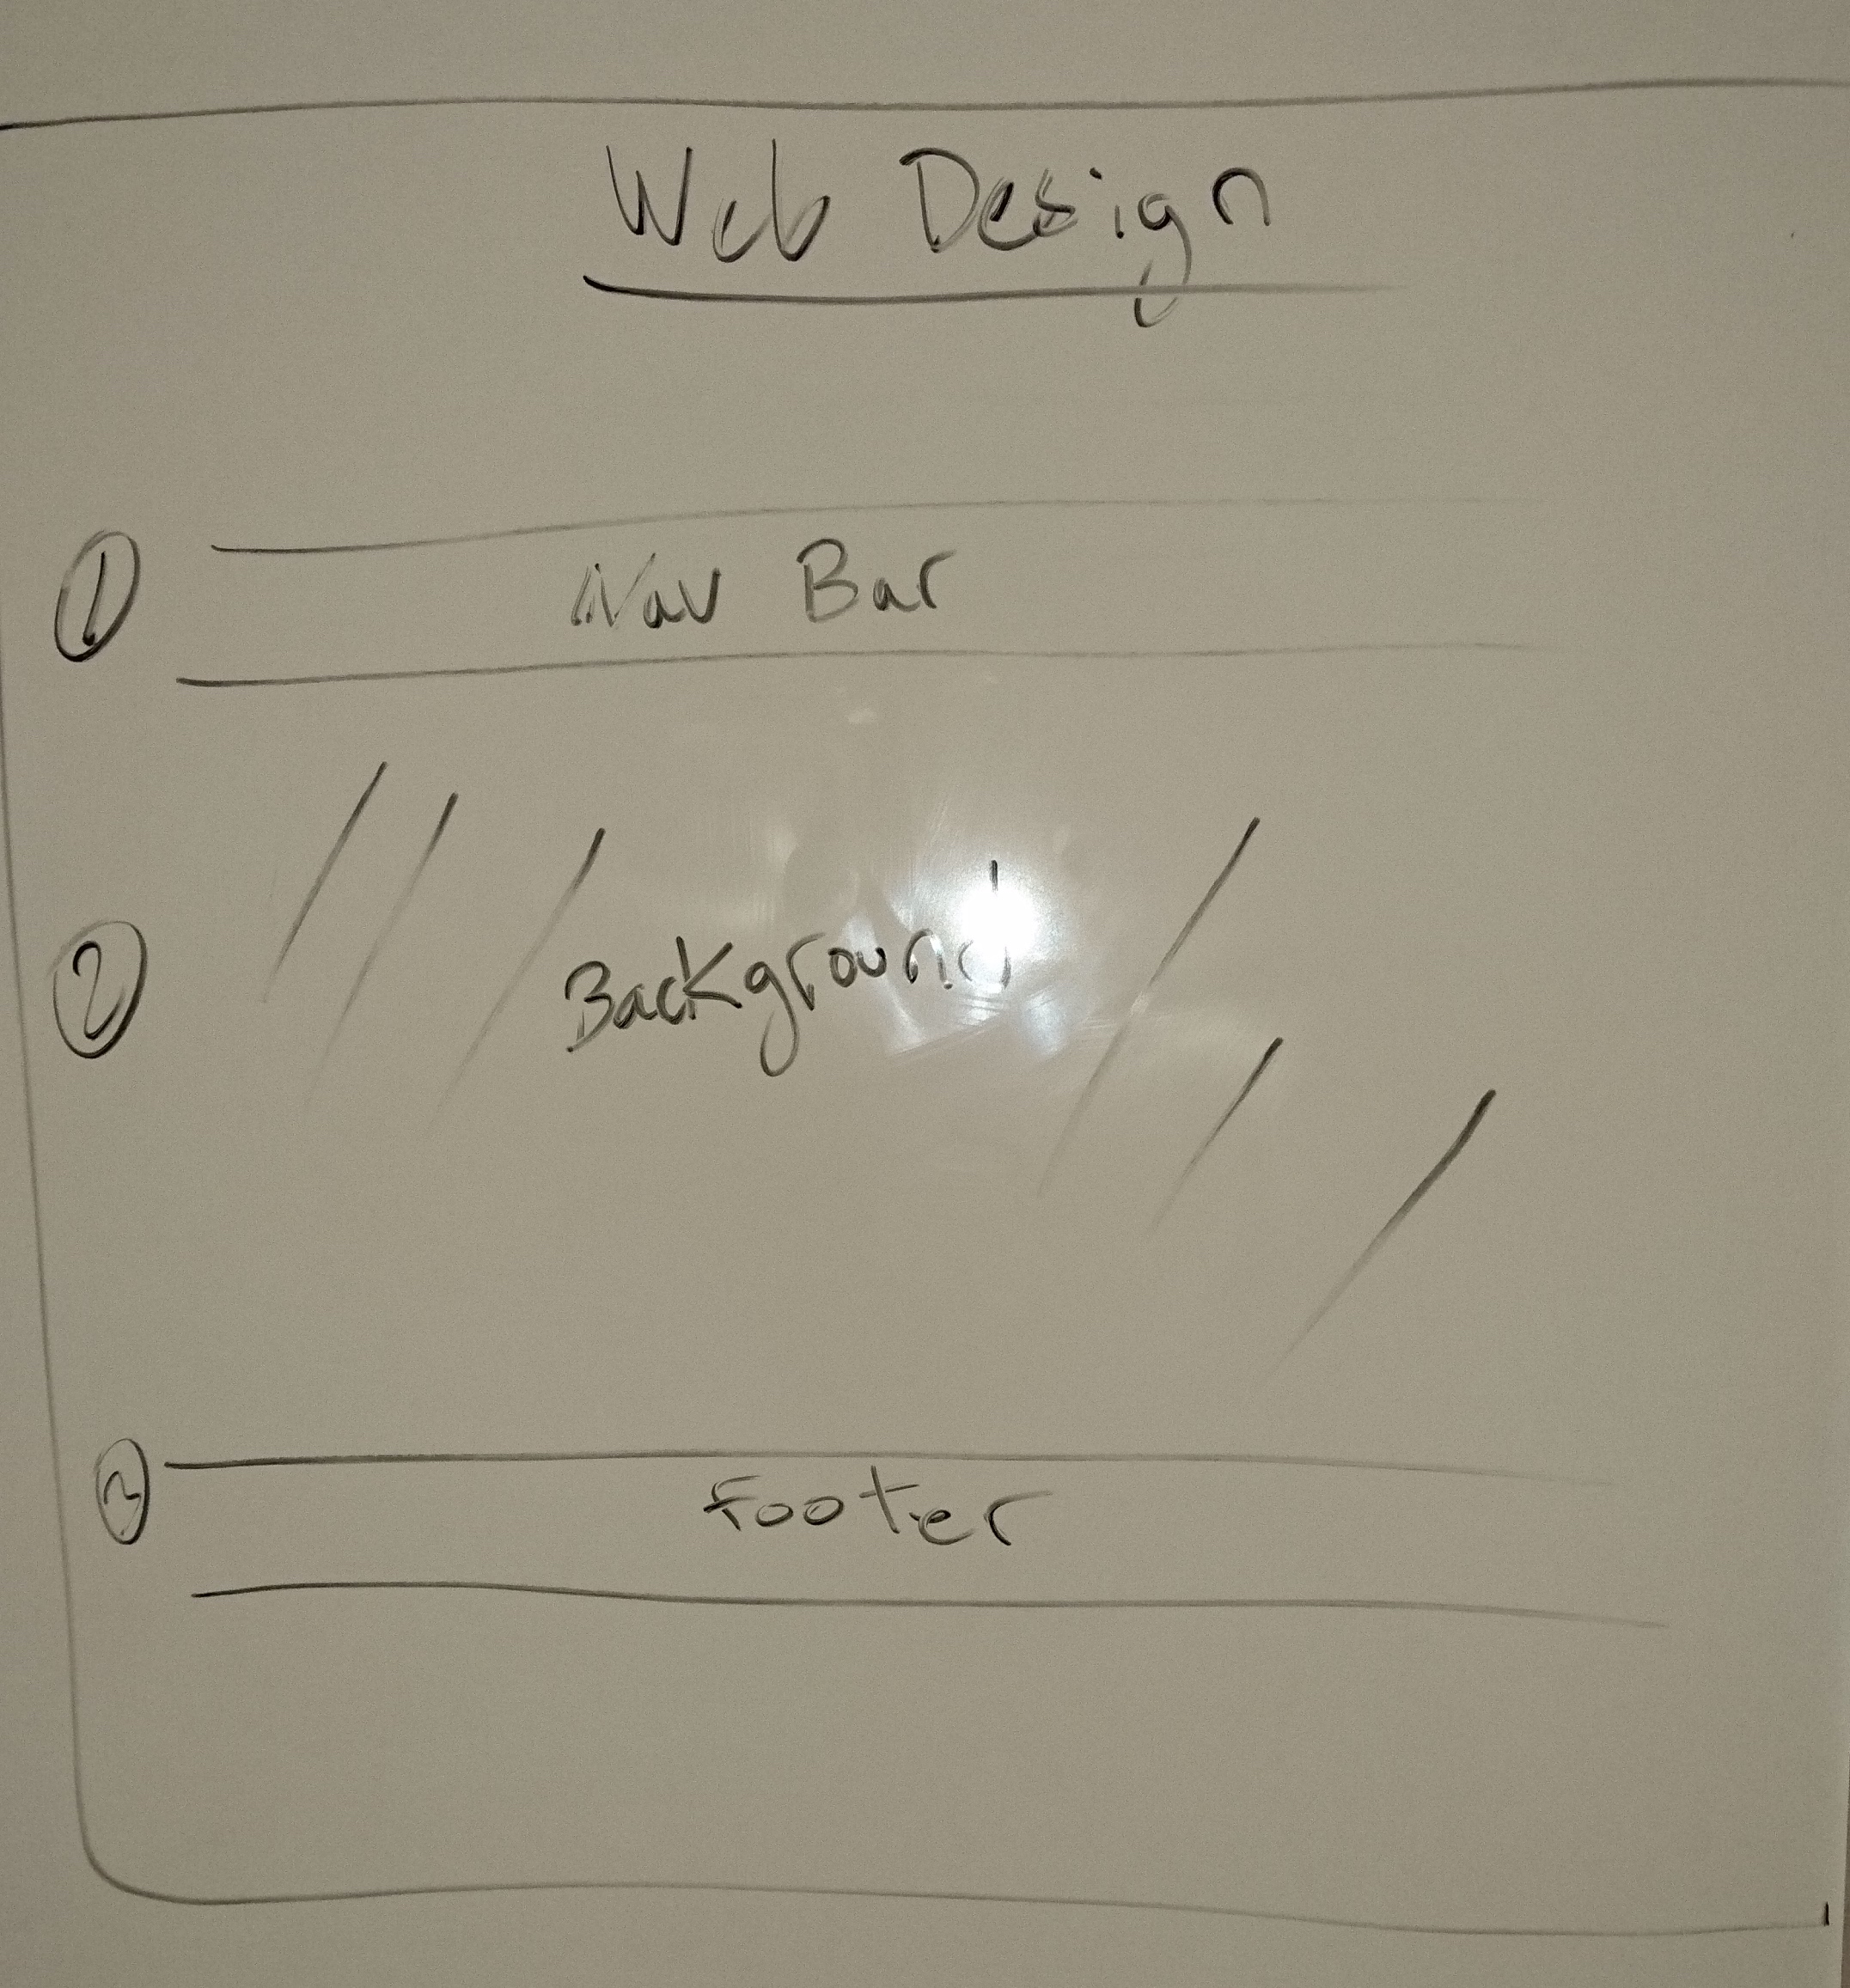 Web Design
① Nav Bar
② Background
③ Footer